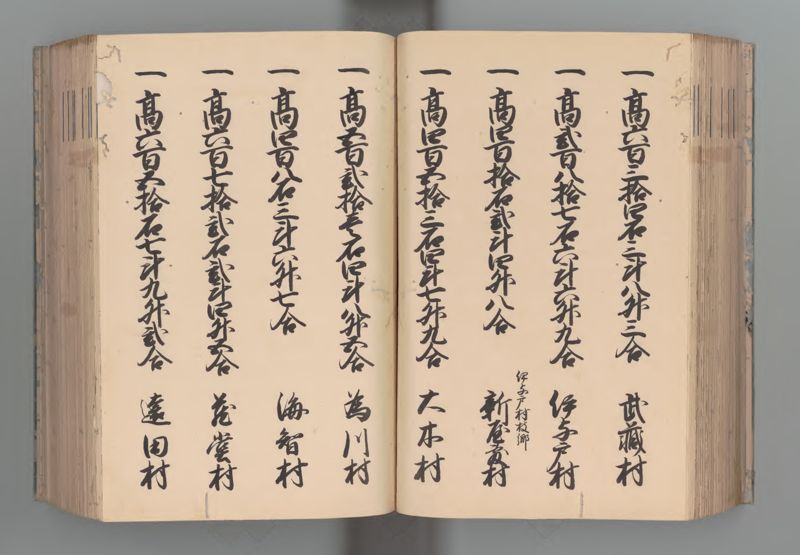 一 高六百三拾四石三斗八升三合 武蔵村
一 高弐百八拾七石六斗六升九合 伊与戸村
伊与戸村枝郷
一 高四百拾石弐斗四升八合 新屋敷村
一 高四百五拾三石四斗七升九合 大木村
一 高五百弐拾壱石四斗八升五合 為川村
一 高四百八石三斗六升七合 海智村
一 高六百七拾弐石弐斗四升五合 蔵堂村
一 高六百五拾石七斗九升弐合 遠田村